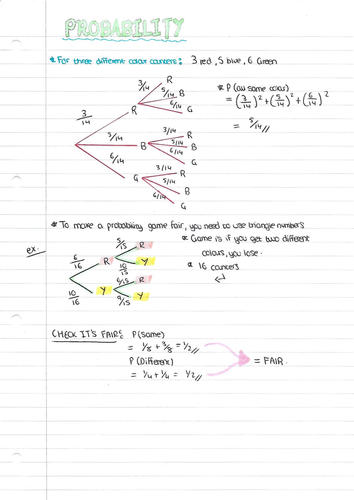 PROBABILITY
* For three different color counters: 3 red, 5 blue, 6 Green
3/14 R
3/14 R
5/14 B
6/14 G
* P(all same colour)
= (3/14)² + (5/14)² + (6/14)²
= 5/14 //
3/14 B
3/14 R
5/14 B
6/14 G
6/14 G
3/14 R
5/14 B
6/14 G
* To make a probability game fair, you need to use triangle numbers
ex.
* Game is if you get two different
colours, you lose.
* 16 counters
6/16 R
5/15 R
10/15 Y
10/16 Y
6/15 R
9/15 Y
CHECK IT'S FAIR: P(same)
= 1/8 + 3/8 = 1/2 //
P(Different)
= 1/4 + 1/4 = 1/2 //
= FAIR.